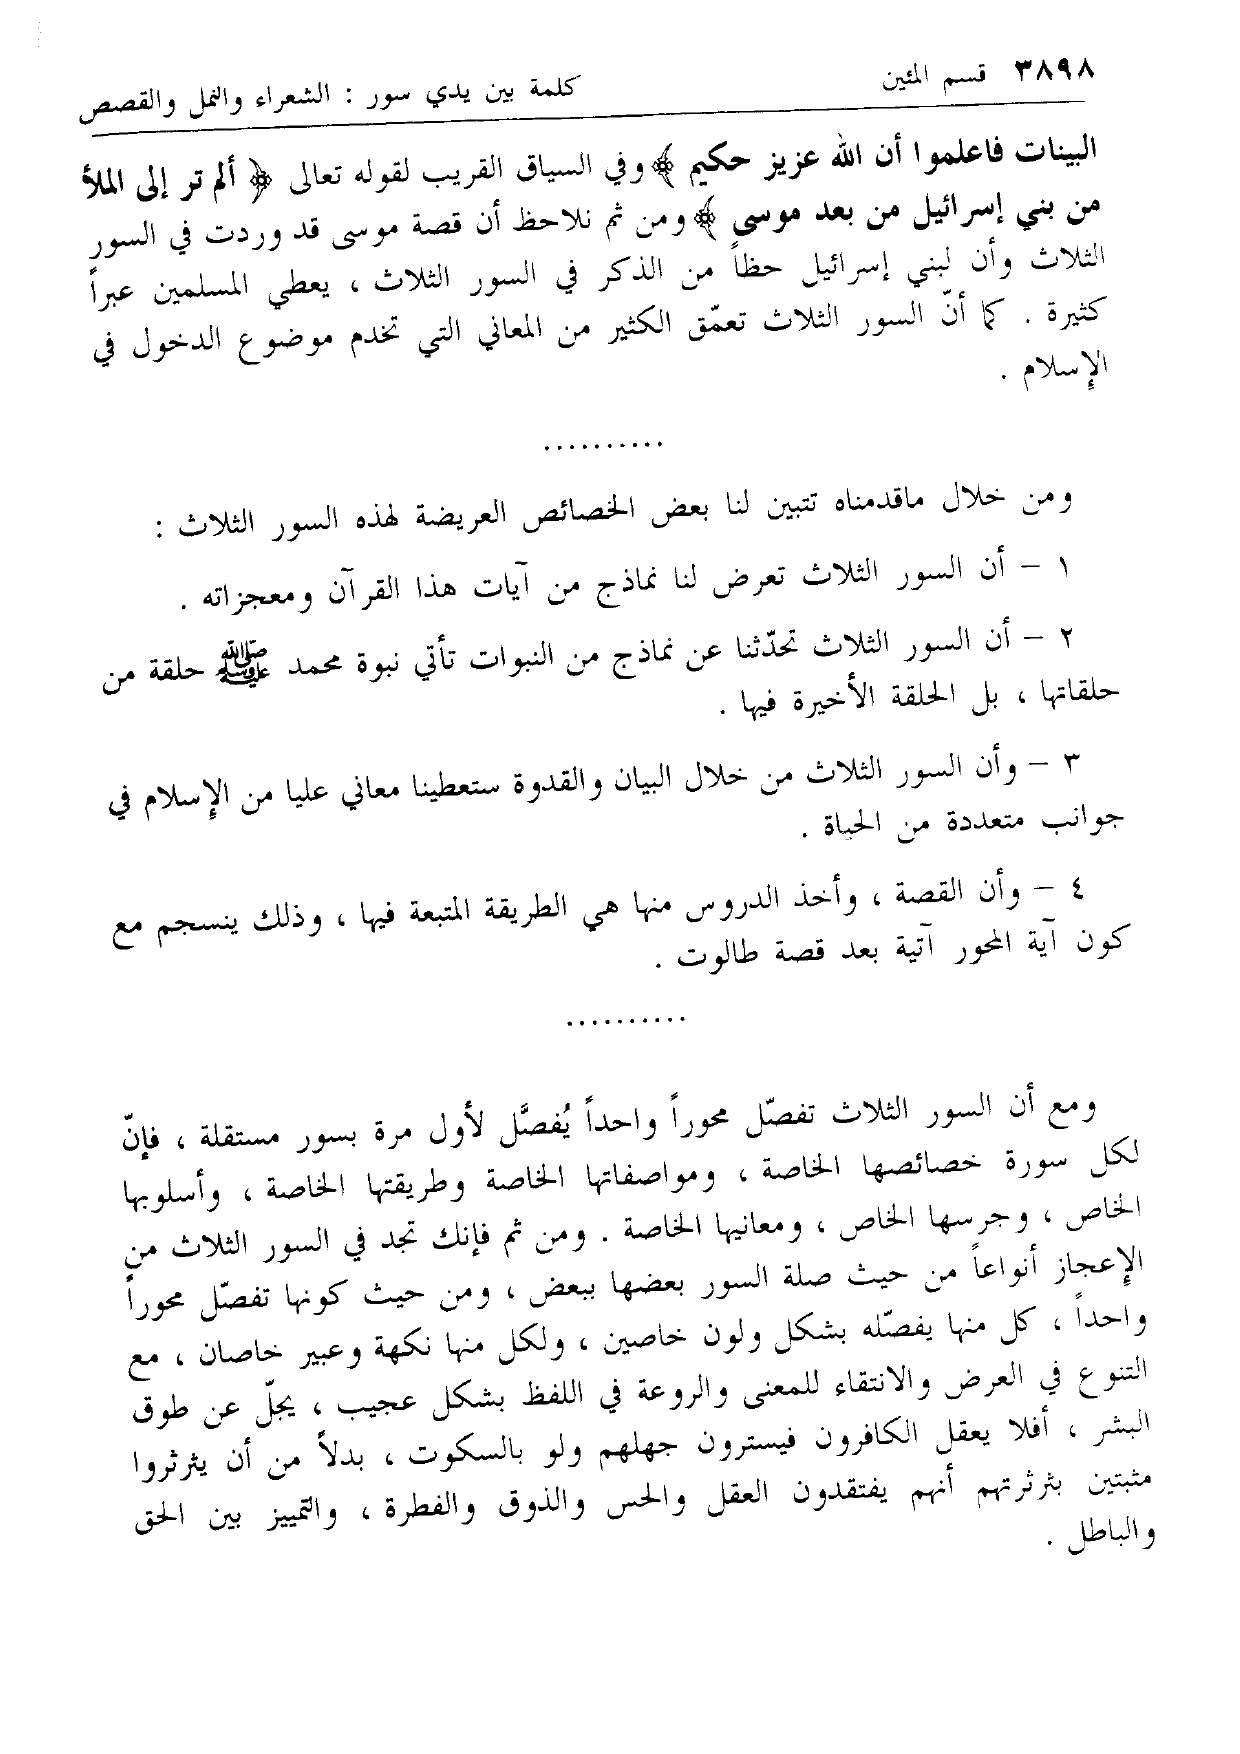 ٣٨٩٨ قسم المئين كلمة بين يدي سور : الشعراء والنمل والقصص
البينات فاعلموا أن الله عزيز حكيم ﴾ وفي السياق القريب لقوله تعالى ﴿ ألم تر إلى الملأ
من بني إسرائيل من بعد موسى ﴾ ومن ثم نلاحظ أن قصة موسى قد وردت في السور
الثلاث وأن لبني إسرائيل حظاً من الذكر في السور الثلاث ، يعطي المسلمين عبراً
كثيرة . كما أنّ السور الثلاث تعمّق الكثير من المعاني التي تخدم موضوع الدخول في
الإسلام .
..........
ومن خلال ماقدمناه تتبين لنا بعض الخصائص العريضة لهذه السور الثلاث :
١ - أن السور الثلاث تعرض لنا نماذج من آيات هذا القرآن ومعجزاته .
٢ - أن السور الثلاث تحدّثنا عن نماذج من النبوات تأتي نبوة محمد ﷺ حلقة من
حلقاتها ، بل الحلقة الأخيرة فيها .
٣ - وأن السور الثلاث من خلال البيان والقدوة ستعطينا معاني عليا من الإسلام في
جوانب متعددة من الحياة .
٤ - وأن القصة ، وأخذ الدروس منها هي الطريقة المتبعة فيها ، وذلك ينسجم مع
كون آية المحور آتية بعد قصة طالوت .
..........
ومع أن السور الثلاث تفصّل محوراً واحداً يُفصَّل لأول مرة بسور مستقلة ، فإنّ
لكل سورة خصائصها الخاصة ، ومواصفاتها الخاصة وطريقتها الخاصة ، وأسلوبها
الخاص ، وجرسها الخاص ، ومعانيها الخاصة . ومن ثم فإنك تجد في السور الثلاث من
الإعجاز أنواعاً من حيث صلة السور بعضها ببعض ، ومن حيث كونها تفصّل محوراً
واحداً ، كل منها يفصّله بشكل ولون خاصين ، ولكل منها نكهة وعبير خاصان ، مع
التنوع في العرض والانتقاء للمعنى والروعة في اللفظ بشكل عجيب ، يجلّ عن طوق
البشر ، أفلا يعقل الكافرون فيسترون جهلهم ولو بالسكوت ، بدلاً من أن يثرثروا
مثبتين بثرثرتهم أنهم يفتقدون العقل والحس والذوق والفطرة ، والتمييز بين الحق
والباطل .